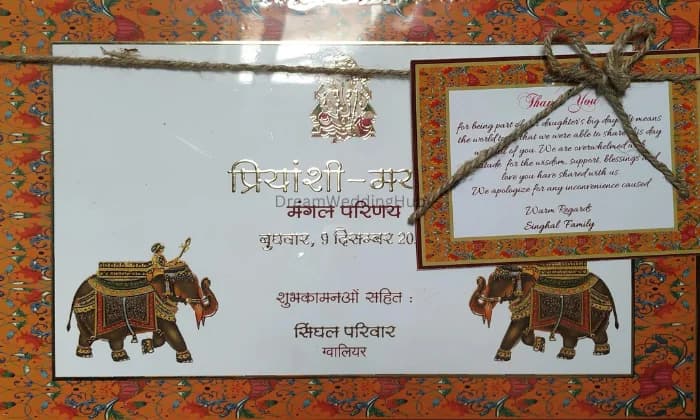 प्रियांशी-मय
मंगल परिणय
DreamWeddingHub
बुधवार, 9 दिसम्बर 20
शुभकामनाओं सहित :
सिंघल परिवार
ग्वालियर
Thank You
for being part of daughter's big day. It means
the world to that we were able to share day
of you. We are overwhelmed
for the wisdom, support, blessings
love you have shared with us.
We apologize for any inconvenience caused
Warm Regards
Singhal Family